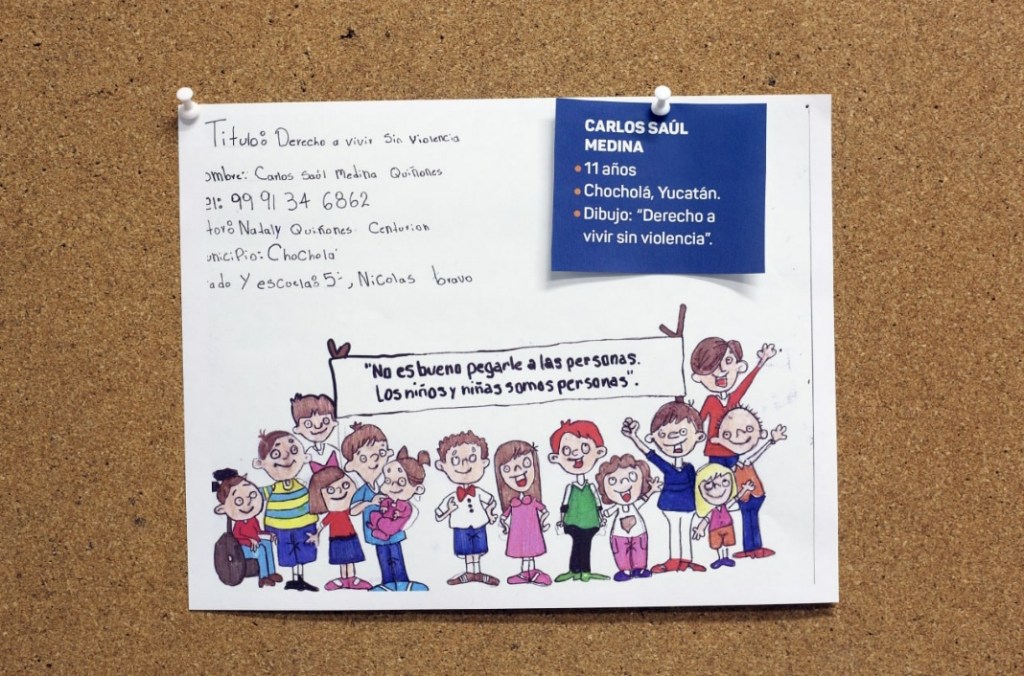 Titulo: Derecho a vivir Sin Violencia
ombre: Carlos Saúl Medina Quiñones
el: 99 91 34 6862
tor: Nataly Quiñones Centurion
unicipio: Chocholá
ado Y escuela: 5º, Nicolas bravo
CARLOS SAÚL
MEDINA
• 11 años
• Chocholá, Yucatán.
• Dibujo: “Derecho a
vivir sin violencia”.
"No es bueno pegarle a las personas.
Los niños y niñas somos personas".